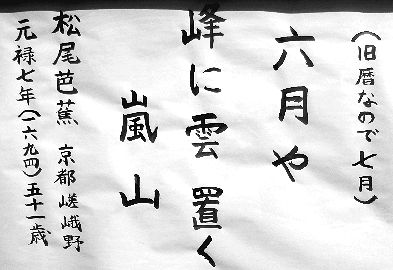 (旧暦なので七月)
六月や
峰に雲置く
嵐山
松尾芭蕉 京都嵯峨野
元禄七年(一六九四)五十一歳